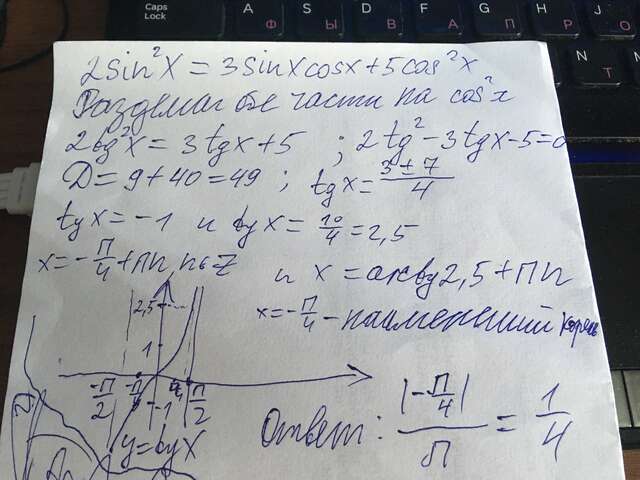 Caps Lock A S D F G H J K
Ф Ы В А П Р О Л
2sin²x = 3sinxcosx + 5cos²x
Разделим обе части на cos²x
2tg²x = 3tgx + 5 ; 2tg² - 3tgx - 5 = 0
D = 9 + 40 = 49 ; tgx = (3 ± 7)/4
tgx = -1 и tgx = 10/4 = 2,5
x = -π/4 + πn, n ∈ Z и x = arctg2,5 + πn
x = -π/4 - наименший корень
2,5
1
-π/2 -π/4 π/2
-1
y = tgx
Ответ: |-π/4|/π = 1/4